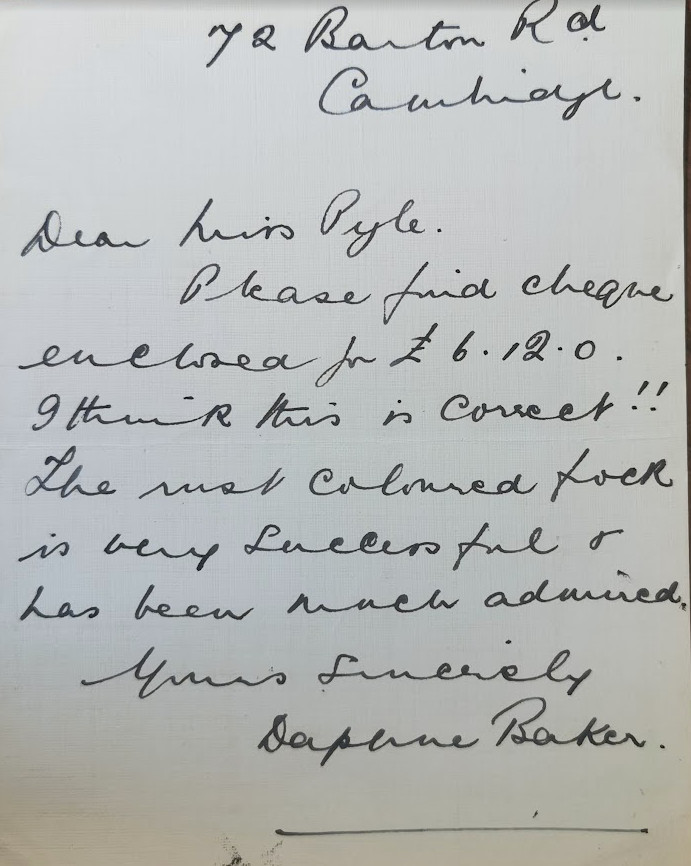 72 Barton Rd
Cambridge.
Dear Miss Pyle.
Please find cheque
enclosed for £6.12.0.
I think this is correct!!
The rust coloured frock
is very successful &
has been much admired.
Yours Sincerely
Daphne Baker.